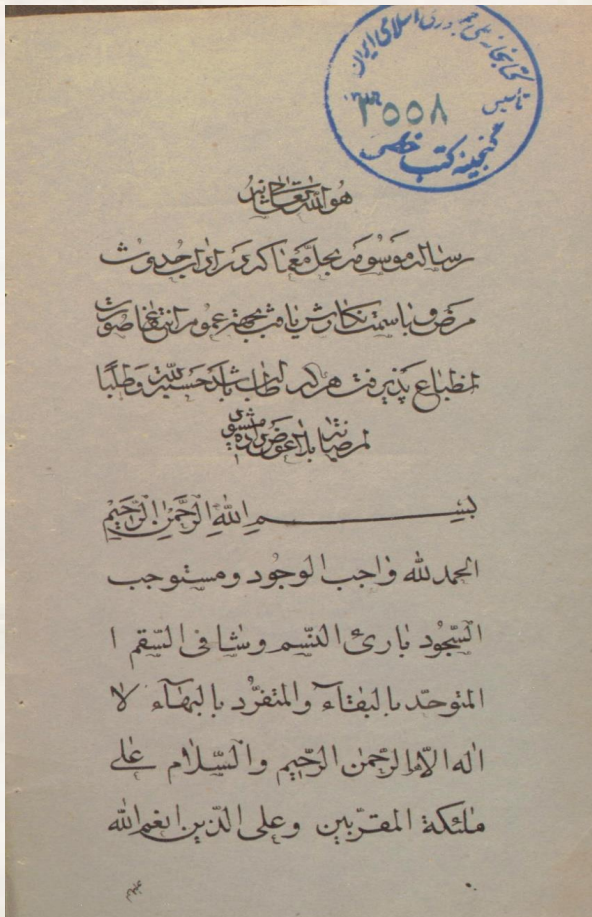 کتابخانه ملی جمهوری اسلامی ایران
تأسیس
۳۵۵۸
گنجینه کتب خطی
هو الله تعالی شانه
رساله موسومه بحل معما که در ابواب حدوث
مرض وبا سمت نگارش یافت بجهة عموم انتفاع صورت
انطباع پذیرفت هر که طالب باشد حسبة لله وطلبًا
لمرضاته بلاعوض داده میشود
بسم الله الرحمن الرحیم
الحمد لله واجب الوجود ومستوجب
السّجُود بارئ النّسم وشافی السّقم ا
المتوحّد بالبقآء والمتفرّد بالبهآء لا
اله الّا هو الرحمن الرحیم والسّلام علی
ملئکة المقرّبین وعلی الذین انعم الله
علیهم